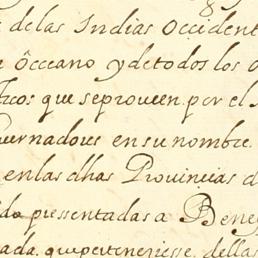 de las Indias Occident
Ôcceano y de todos los o
ficos que se proveen por el
vernadores en su nombre
en las dhas Provincias d
pressentadas a Benef
ada, que perteneciesse, dellas